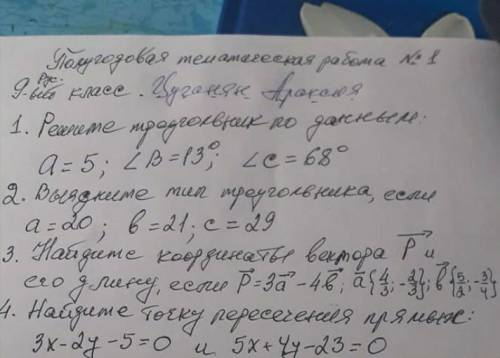 Полугодовая тематическая работа № 1
9-ый Рус. класс. Цуганян Араксия
1. Решите треуголвник по данным:
a = 5; ∠B = 13°; ∠C = 68°
2. Выясните тип треугольника, если
a = 20; в = 21; c = 29
3. Найдите координаты вектора P⃗ и
его длину, если P⃗ = 3a⃗ - 4в⃗; a⃗ {4/3; -2/3}; в⃗ {5/2; -3/4}
4. Найдите точку пересечения прямых:
3x - 2y - 5 = 0 и 5x + 4y - 23 = 0